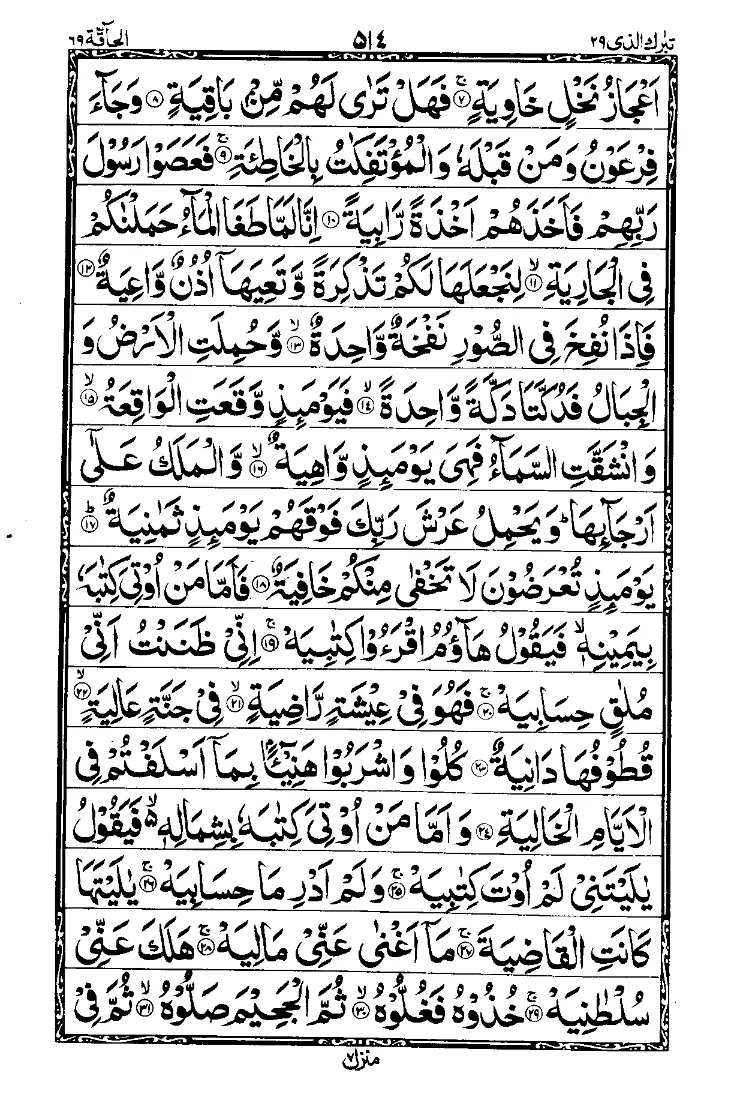 تبٰرك الذى ٢٩ ٥١٤ الحآقة ٦٩
اَعْجَازُ نَخْلٍ خَاوِيَةٍ ۚ﴿٧﴾ فَهَلْ تَرٰى لَهُمْ مِّنْۢ بَاقِيَةٍ ﴿٨﴾ وَجَآءَ
فِرْعَوْنُ وَمَنْ قَبْلَهٗ وَالْمُؤْتَفِكٰتُ بِالْخَاطِئَةِ ۚ﴿٩﴾ فَعَصَوْا رَسُوْلَ
رَبِّهِمْ فَاَخَذَهُمْ اَخْذَةً رَّابِيَةً ﴿١٠﴾ اِنَّا لَمَّا طَغَا الْمَآءُ حَمَلْنٰكُمْ
فِى الْجَارِيَةِ ۙ﴿١١﴾ لِنَجْعَلَهَا لَكُمْ تَذْكِرَةً وَّ تَعِيَهَآ اُذُنٌ وَّاعِيَةٌ ﴿١٢﴾
فَاِذَا نُفِخَ فِى الصُّوْرِ نَفْخَةٌ وَّاحِدَةٌ ۙ﴿١٣﴾ وَّحُمِلَتِ الْاَرْضُ وَ
الْجِبَالُ فَدُكَّتَا دَكَّةً وَّاحِدَةً ۙ﴿١٤﴾ فَيَوْمَئِذٍ وَّقَعَتِ الْوَاقِعَةُ ۙ﴿١٥﴾
وَ انْشَقَّتِ السَّمَآءُ فَهِىَ يَوْمَئِذٍ وَّاهِيَةٌ ۙ﴿١٦﴾ وَّالْمَلَكُ عَلٰٓى
اَرْجَآئِهَا ؕ وَيَحْمِلُ عَرْشَ رَبِّكَ فَوْقَهُمْ يَوْمَئِذٍ ثَمٰنِيَةٌ ؕ﴿١٧﴾
يَوْمَئِذٍ تُعْرَضُوْنَ لَا تَخْفٰى مِنْكُمْ خَافِيَةٌ ﴿١٨﴾ فَاَمَّا مَنْ اُوْتِىَ كِتٰبَهٗ
بِيَمِيْنِهٖ ۙ فَيَقُوْلُ هَآؤُمُ اقْرَءُوْا كِتٰبِيَهْ ۚ﴿١٩﴾ اِنِّىْ ظَنَنْتُ اَنِّىْ
مُلٰقٍ حِسَابِيَهْ ۚ﴿٢٠﴾ فَهُوَ فِىْ عِيْشَةٍ رَّاضِيَةٍ ۙ﴿٢١﴾ فِىْ جَنَّةٍ عَالِيَةٍ ۙ﴿٢٢﴾
قُطُوْفُهَا دَانِيَةٌ ﴿٢٣﴾ كُلُوْا وَاشْرَبُوْا هَنِيْٓئًۢا بِمَآ اَسْلَفْتُمْ فِى
الْاَيَّامِ الْخَالِيَةِ ﴿٢٤﴾ وَ اَمَّا مَنْ اُوْتِىَ كِتٰبَهٗ بِشِمَالِهٖ ۙ۬ فَيَقُوْلُ
يٰلَيْتَنِىْ لَمْ اُوْتَ كِتٰبِيَهْ ۚ﴿٢٥﴾ وَلَمْ اَدْرِ مَا حِسَابِيَهْ ۚ﴿٢٦﴾ يٰلَيْتَهَا
كَانَتِ الْقَاضِيَةَ ۚ﴿٢٧﴾ مَآ اَغْنٰى عَنِّىْ مَالِيَهْ ۚ﴿٢٨﴾ هَلَكَ عَنِّىْ
سُلْطٰنِيَهْ ۚ﴿٢٩﴾ خُذُوْهُ فَغُلُّوْهُ ۙ﴿٣٠﴾ ثُمَّ الْجَحِيْمَ صَلُّوْهُ ۙ﴿٣١﴾ ثُمَّ فِىْ
منزل ٧